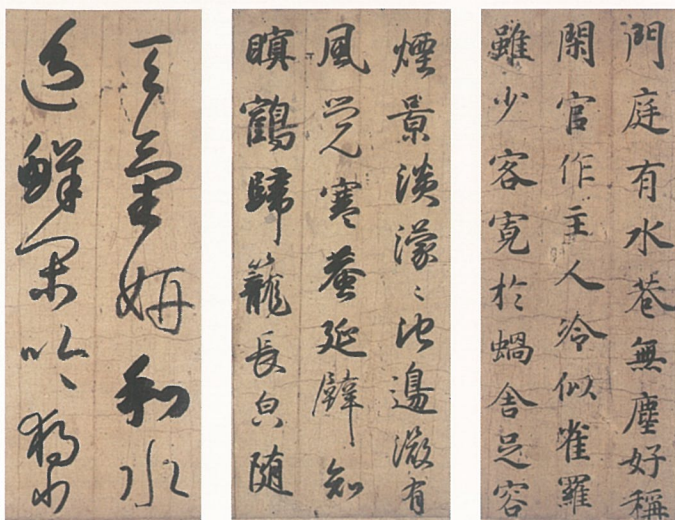 門庭有水巷無塵好稱
閑官作主人冷似雀羅
雖少客寛於蝸舎足容
煙景淡濛〻池邊微有
風覚寒蛬近壁知
暝鶴歸籠長只随
天氣妍和水
色鮮閑吟獨步